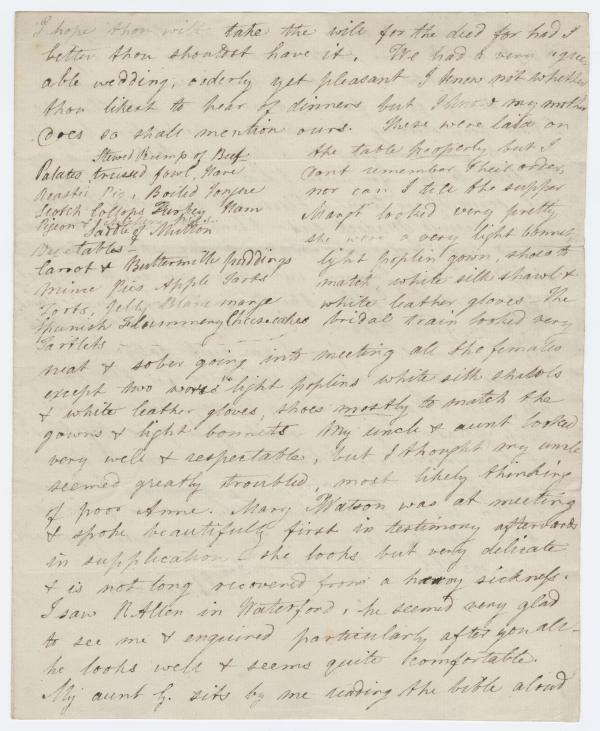 I hope thou wilt take the will for the deed for had I
better thou shouldst have it. We had a very agree-
able wedding, orderly yet pleasant I knew not whether
thou likest to hear of dinners but I know my mother
does so shall mention ours. These were laid on
Stewed Rump of Beef
Palates trussed fowl, Hare
Roasted Pig, Boiled Tongue
Scotch Collops Turkey Ham
Pigeon
Saddle of Mutton
Vegetables -
Carrot & Buttermilk puddings
Mince Pies Apple Tarts
Torts, Jelly Blancmange
Spanish Flummery Cheesecakes
Tartlets -
the table properly but I
cant remember their order,
nor can I tell the supper
Margt looked very pretty
she wore a very light bonnet,
light poplin gown, shoes to
match, white silk shawl &
white leather gloves - The
bridal train looked very
neat & sober going into meeting all the females
except two wore light poplins white silk shawls
& white leather gloves, shoes mostly to match the
gowns & light bonnets - My uncle & aunt looked
very well & respectable, but I thought my uncle
seemed greatly troubled, most likely thinking
of poor Anne. Mary Watson was at meeting
& spoke beautifully first in testimony afterwards
in supplication - she looks but very delicate
& is not long recovered from a heavy sickness.
I saw R Allen in Waterford, he seemed very glad
to see me & enquired particularly after you all -
he looks well & seems quite comfortable.
My aunt G. sits by me reading the bible aloud